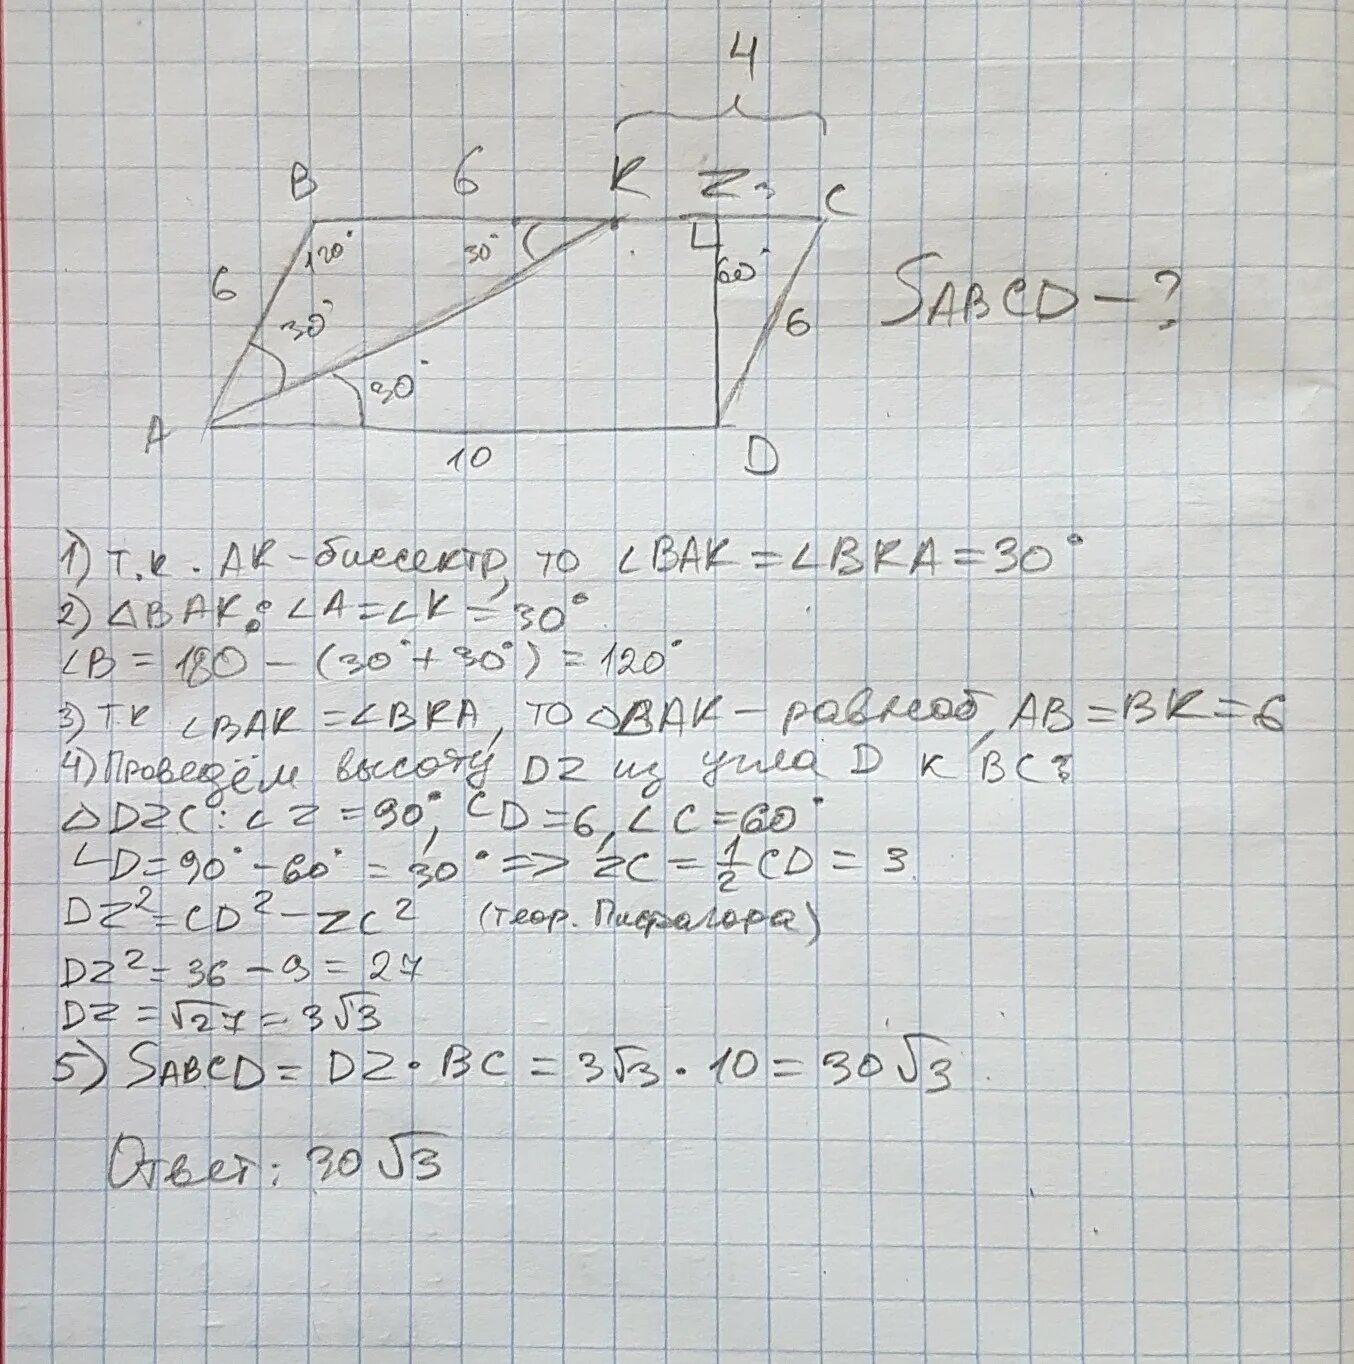 4
B 6 K Z 3 C
120° 30° 60°
6 30° 6 SABCD - ?
30°
A 10 D
1) Т.к. AK - биссектр, то ∠BAK = ∠BKA = 30°
2) △BAK: ∠A = ∠K = 30°
∠B = 180 - (30° + 30°) = 120°
3) Тк ∠BAK = ∠BKA, то △BAK - равноб, AB = BK = 6
4) Проведём высоту DZ из угла D к BC:
△DZC: ∠Z = 90°, CD = 6, ∠C = 60°
∠D = 90° - 60° = 30° => ZC = 1/2 CD = 3
DZ² = CD² - ZC² (теор. Пифагора)
DZ² = 36 - 9 = 27
DZ = √27 = 3√3
5) SABCD = DZ · BC = 3√3 · 10 = 30√3
Ответ: 30√3